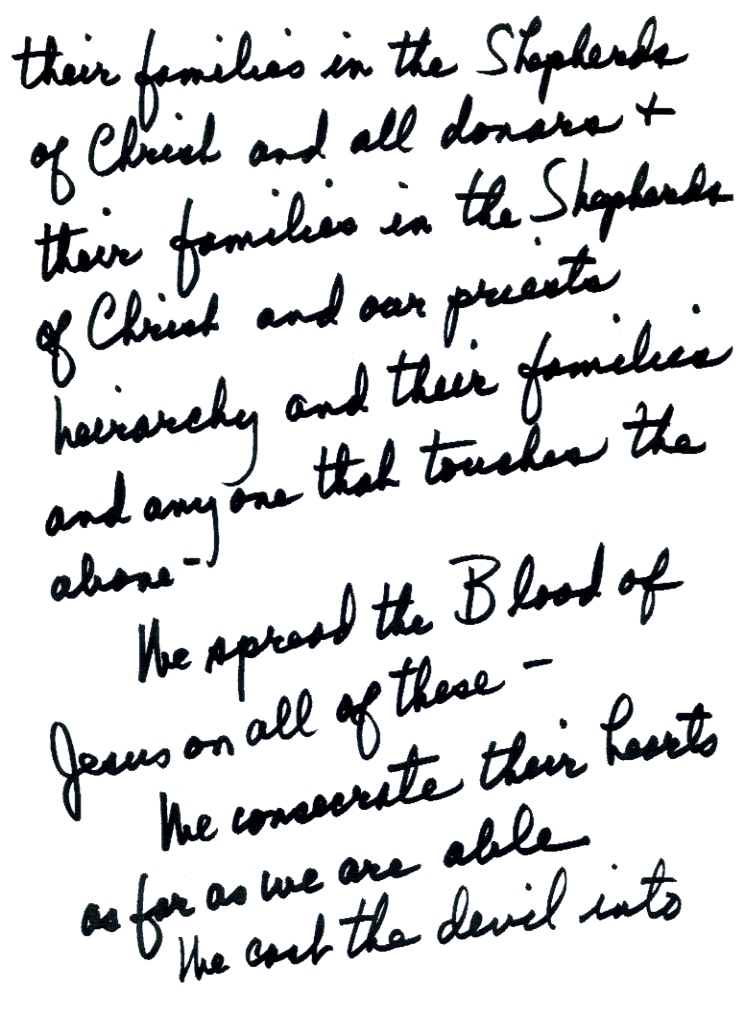 their families in the Shepherds
of Christ and all donors +
their families in the Shepherds
of Christ and our priests
heirarchy and their families
and anyone that touches the
above -
We spread the Blood of
Jesus on all of these -
We consecrate their hearts
as far as we are able
We cast the devil into